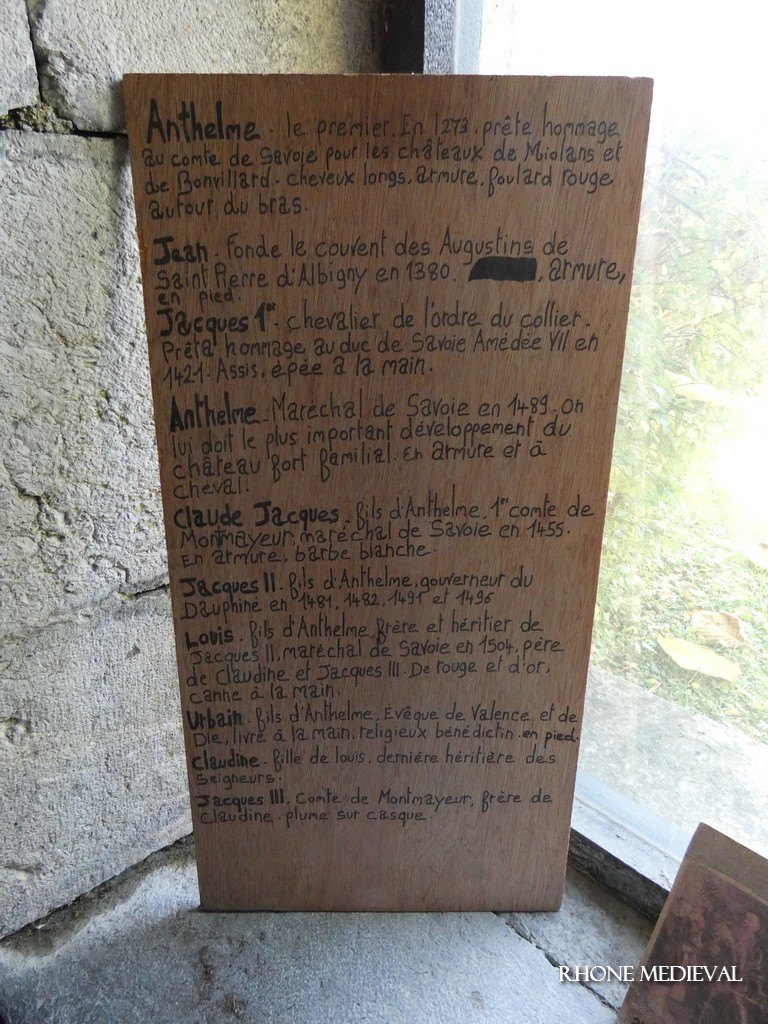 Anthelme. le premier. En 1273. prête hommage
au comte de Savoie pour les châteaux de Miolans et
de Bonvillard. cheveux longs, armure, foulard rouge
autour du bras.
Jean. Fonde le couvent des Augustins de
Saint Pierre d'Albigny en 1380. , armure,
en pied.
Jacques 1er. chevalier de l'ordre du collier.
Prêta hommage au duc de Savoie Amédée VII en
1421. Assis, épée à la main.
Anthelme. Maréchal de Savoie en 1489. On
lui doit le plus important développement du
château fort familial. En armure et à
cheval.
Claude Jacques. fils d'Anthelme, 1er comte de
Montmayeur, maréchal de Savoie en 1455.
En armure, barbe blanche.
Jacques II. fils d'Anthelme, gouverneur du
Dauphiné en 1481, 1482, 1491 et 1496
Louis. fils d'Anthelme, frère et héritier de
Jacques II, maréchal de Savoie en 1504, père
de Claudine et Jacques III. De rouge et d'or,
canne à la main.
Urbain. fils d'Anthelme, Evêque de Valence et de
Die, livre à la main. religieux bénédictin. en pied.
Claudine. fille de louis, dernière héritière des
Seigneurs.
Jacques III. Comte de Montmayeur, frère de
Claudine. plume sur casque.
RHONE MEDIEVAL